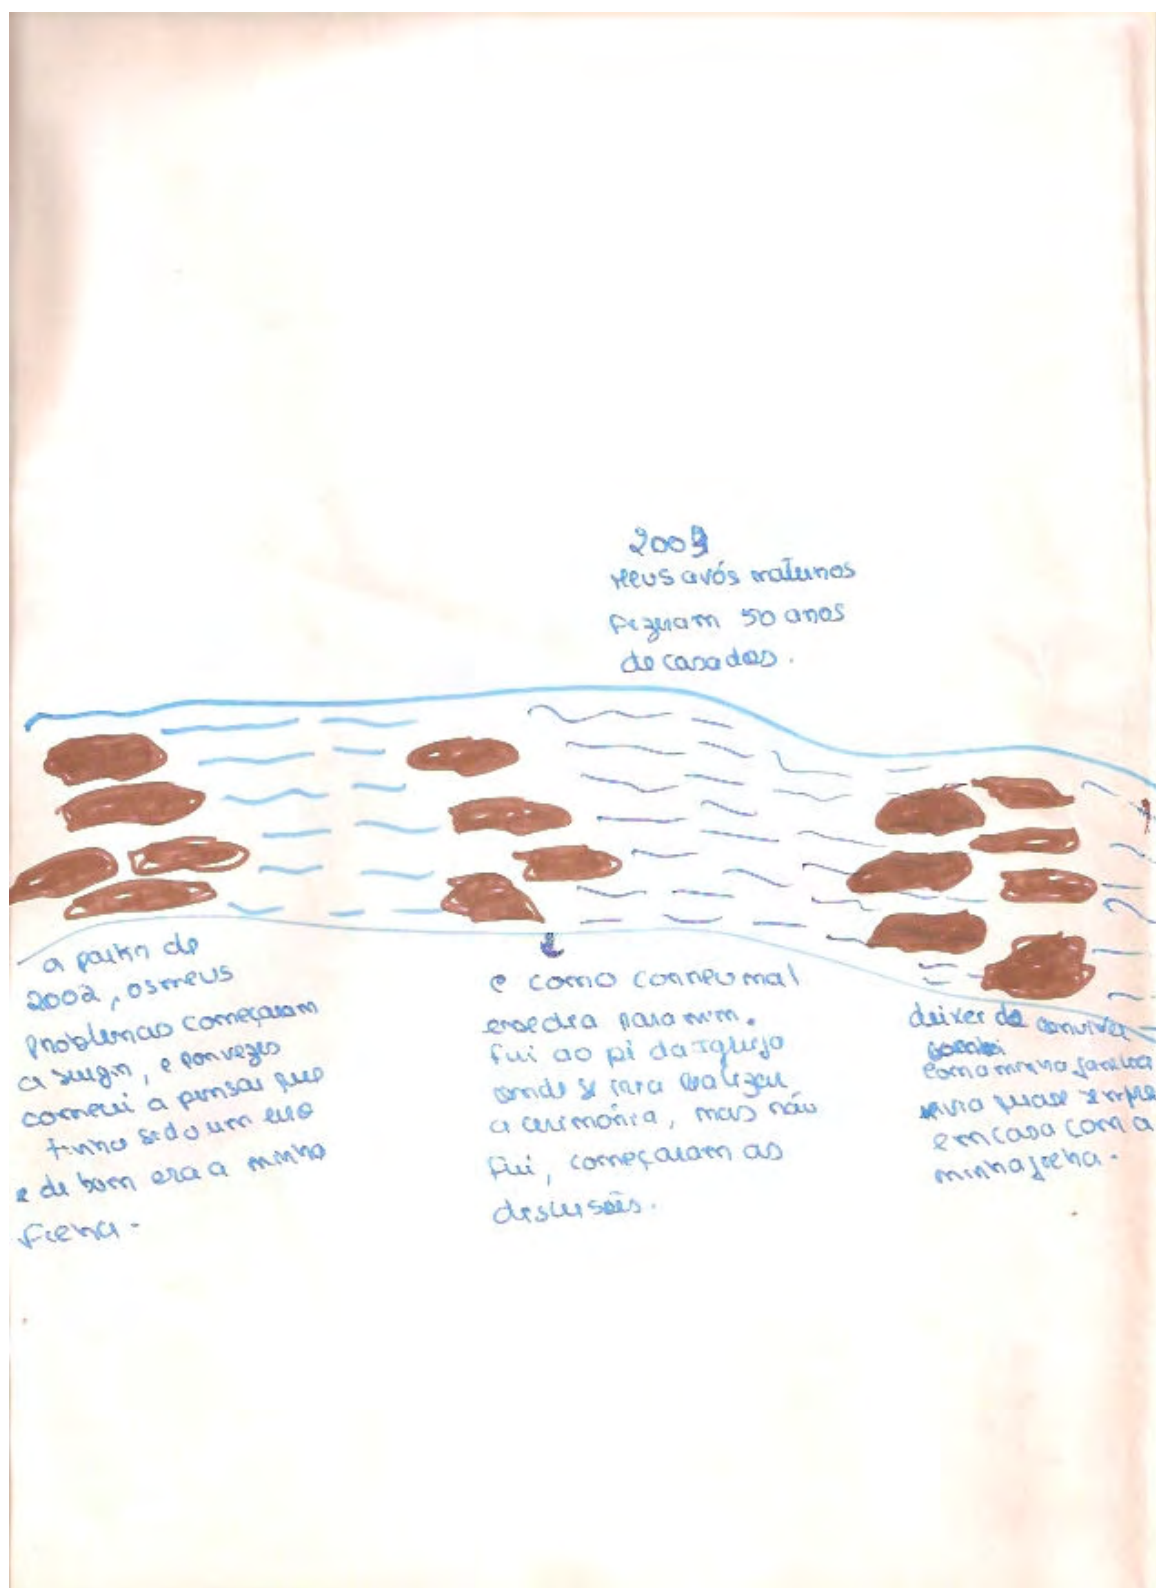 2009
Meus avós maternos
fizeram 50 anos
de casados.
a partir de
2002, os meus
problemas começaram
a surgir, e por vezes
comecei a pensar que
tinha sido um erro
e de bom era a minha
filha.
e como correu mal
esse dia para mim.
fui ao pé da igreja
onde se iria realizar
a cerimónia, mas não
fui, começaram as
discusões.
deixei de conviver
com a minha família
vivia quase sempre
em casa com a
minha filha.